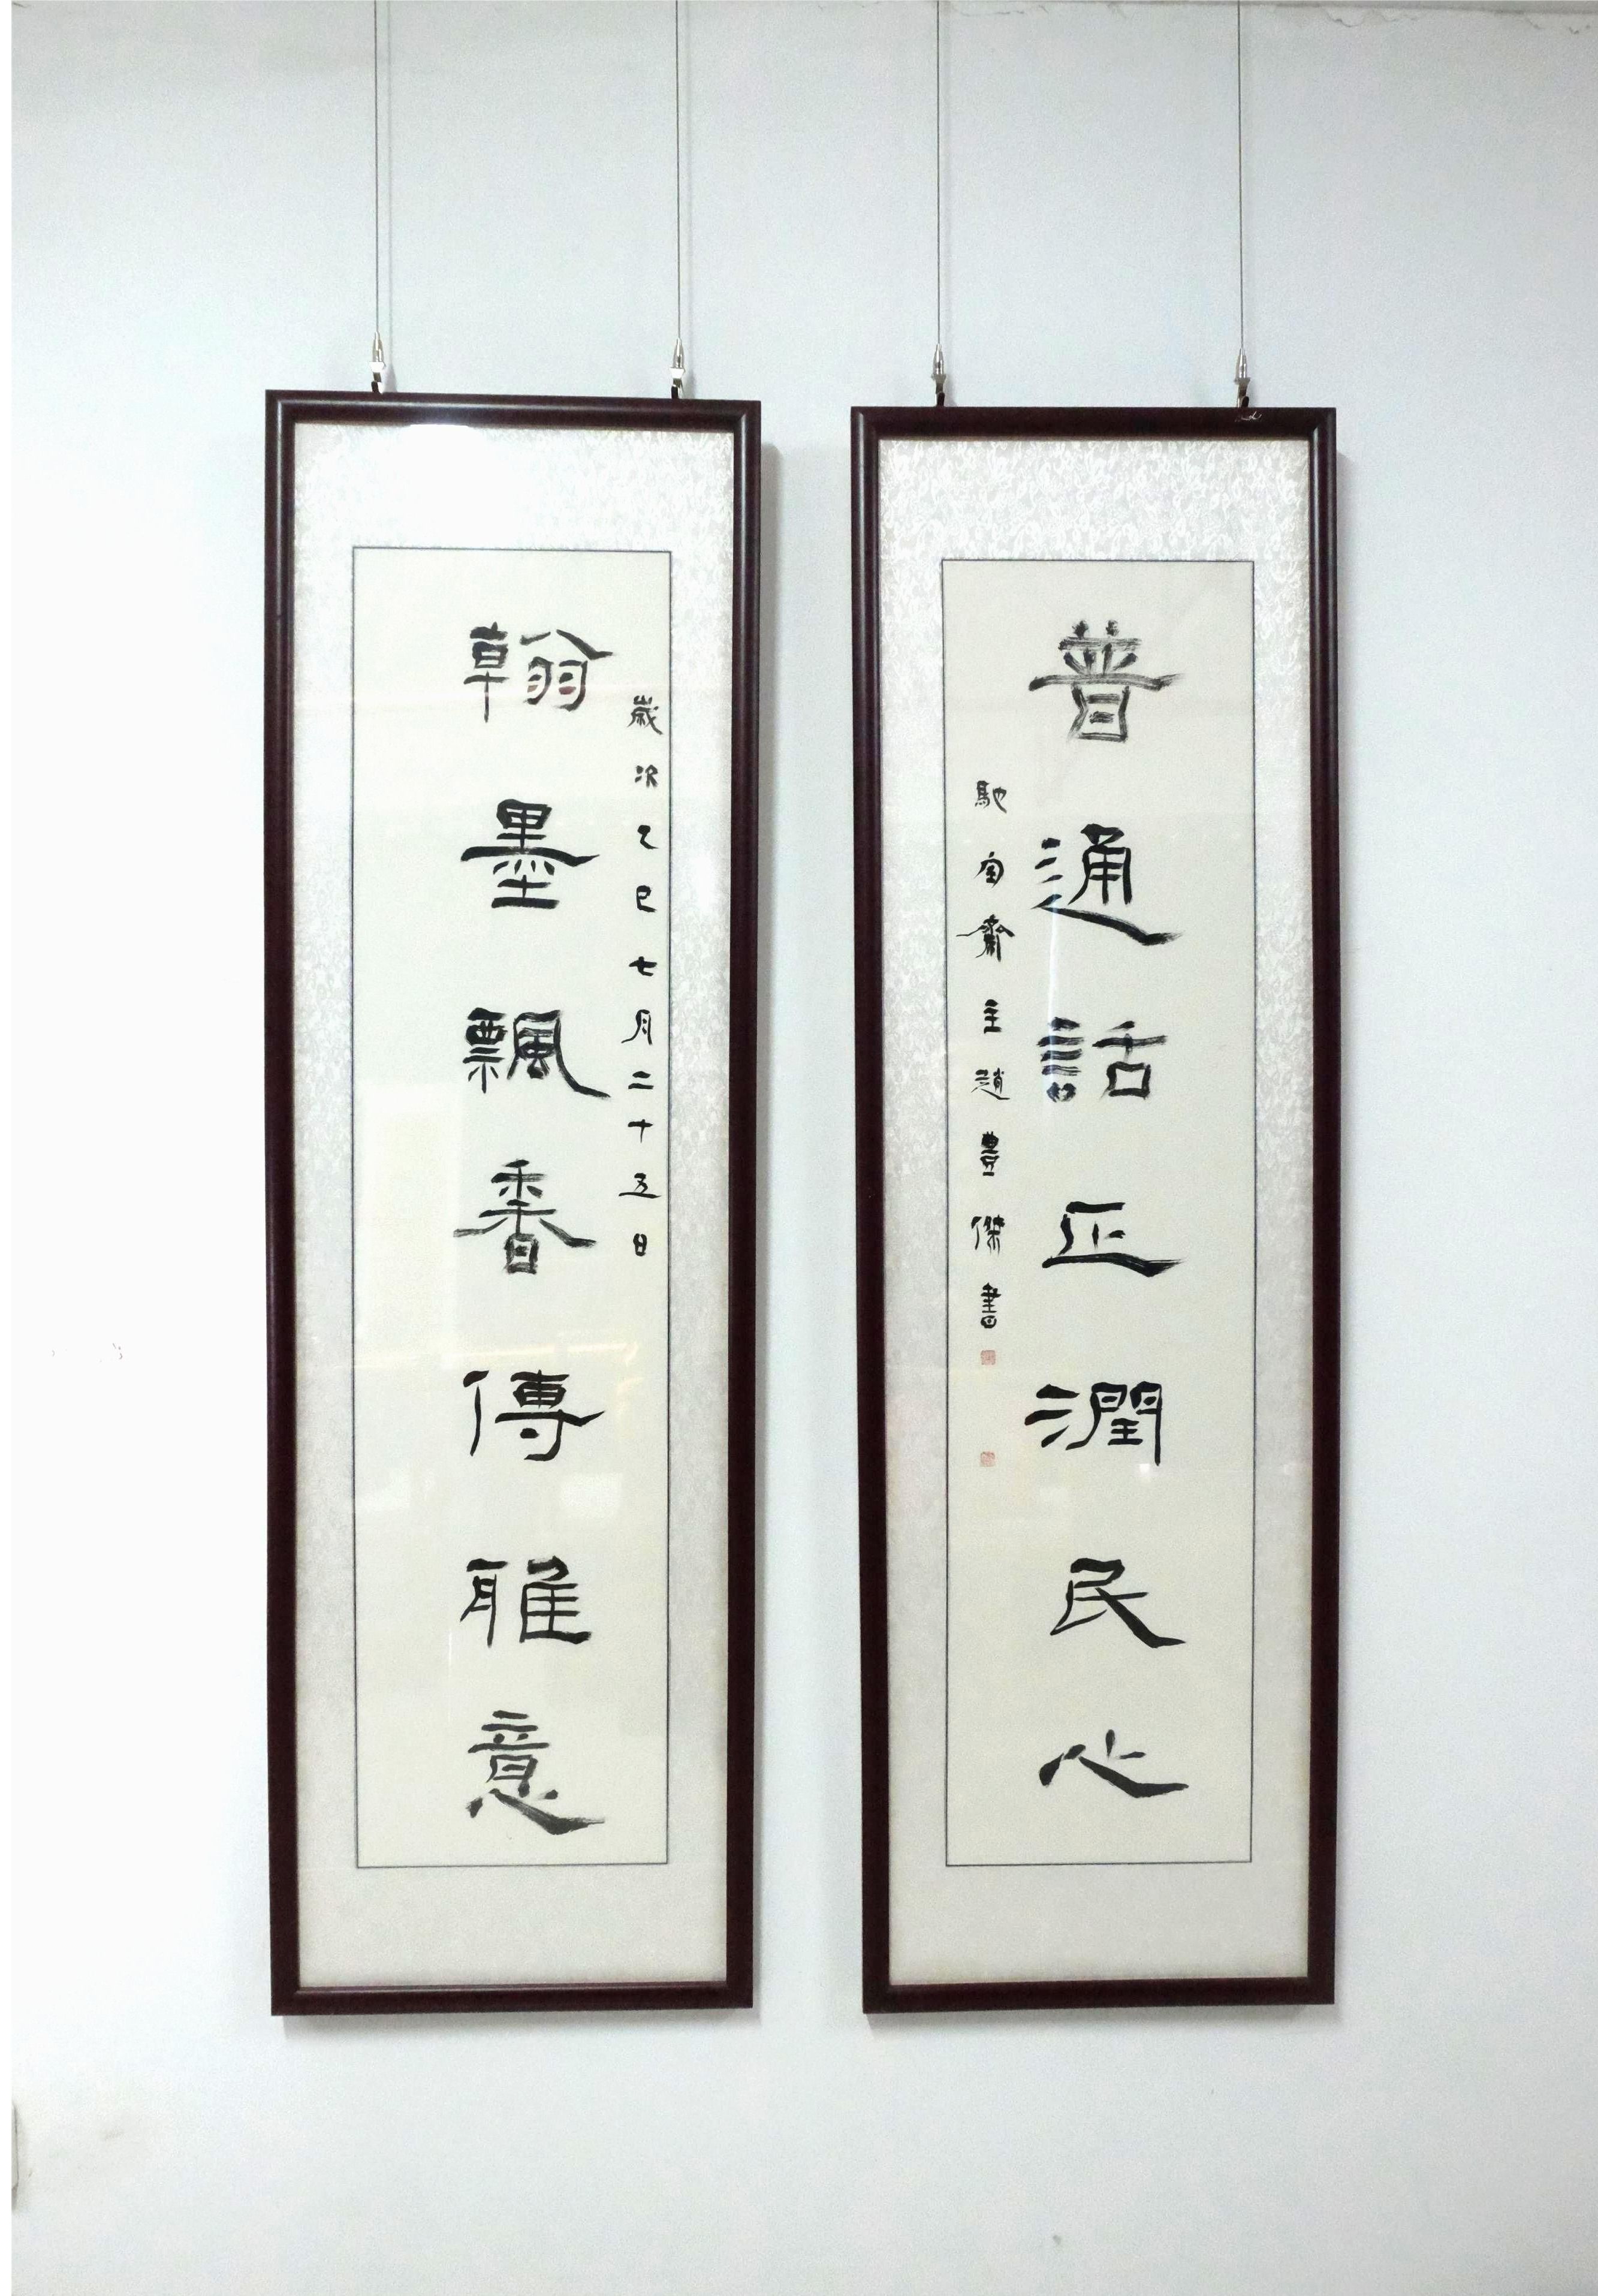 普通話正潤民心
馳宙齋主趙豊傑書
歲次乙巳七月二十五日
翰墨飄香傳雅意